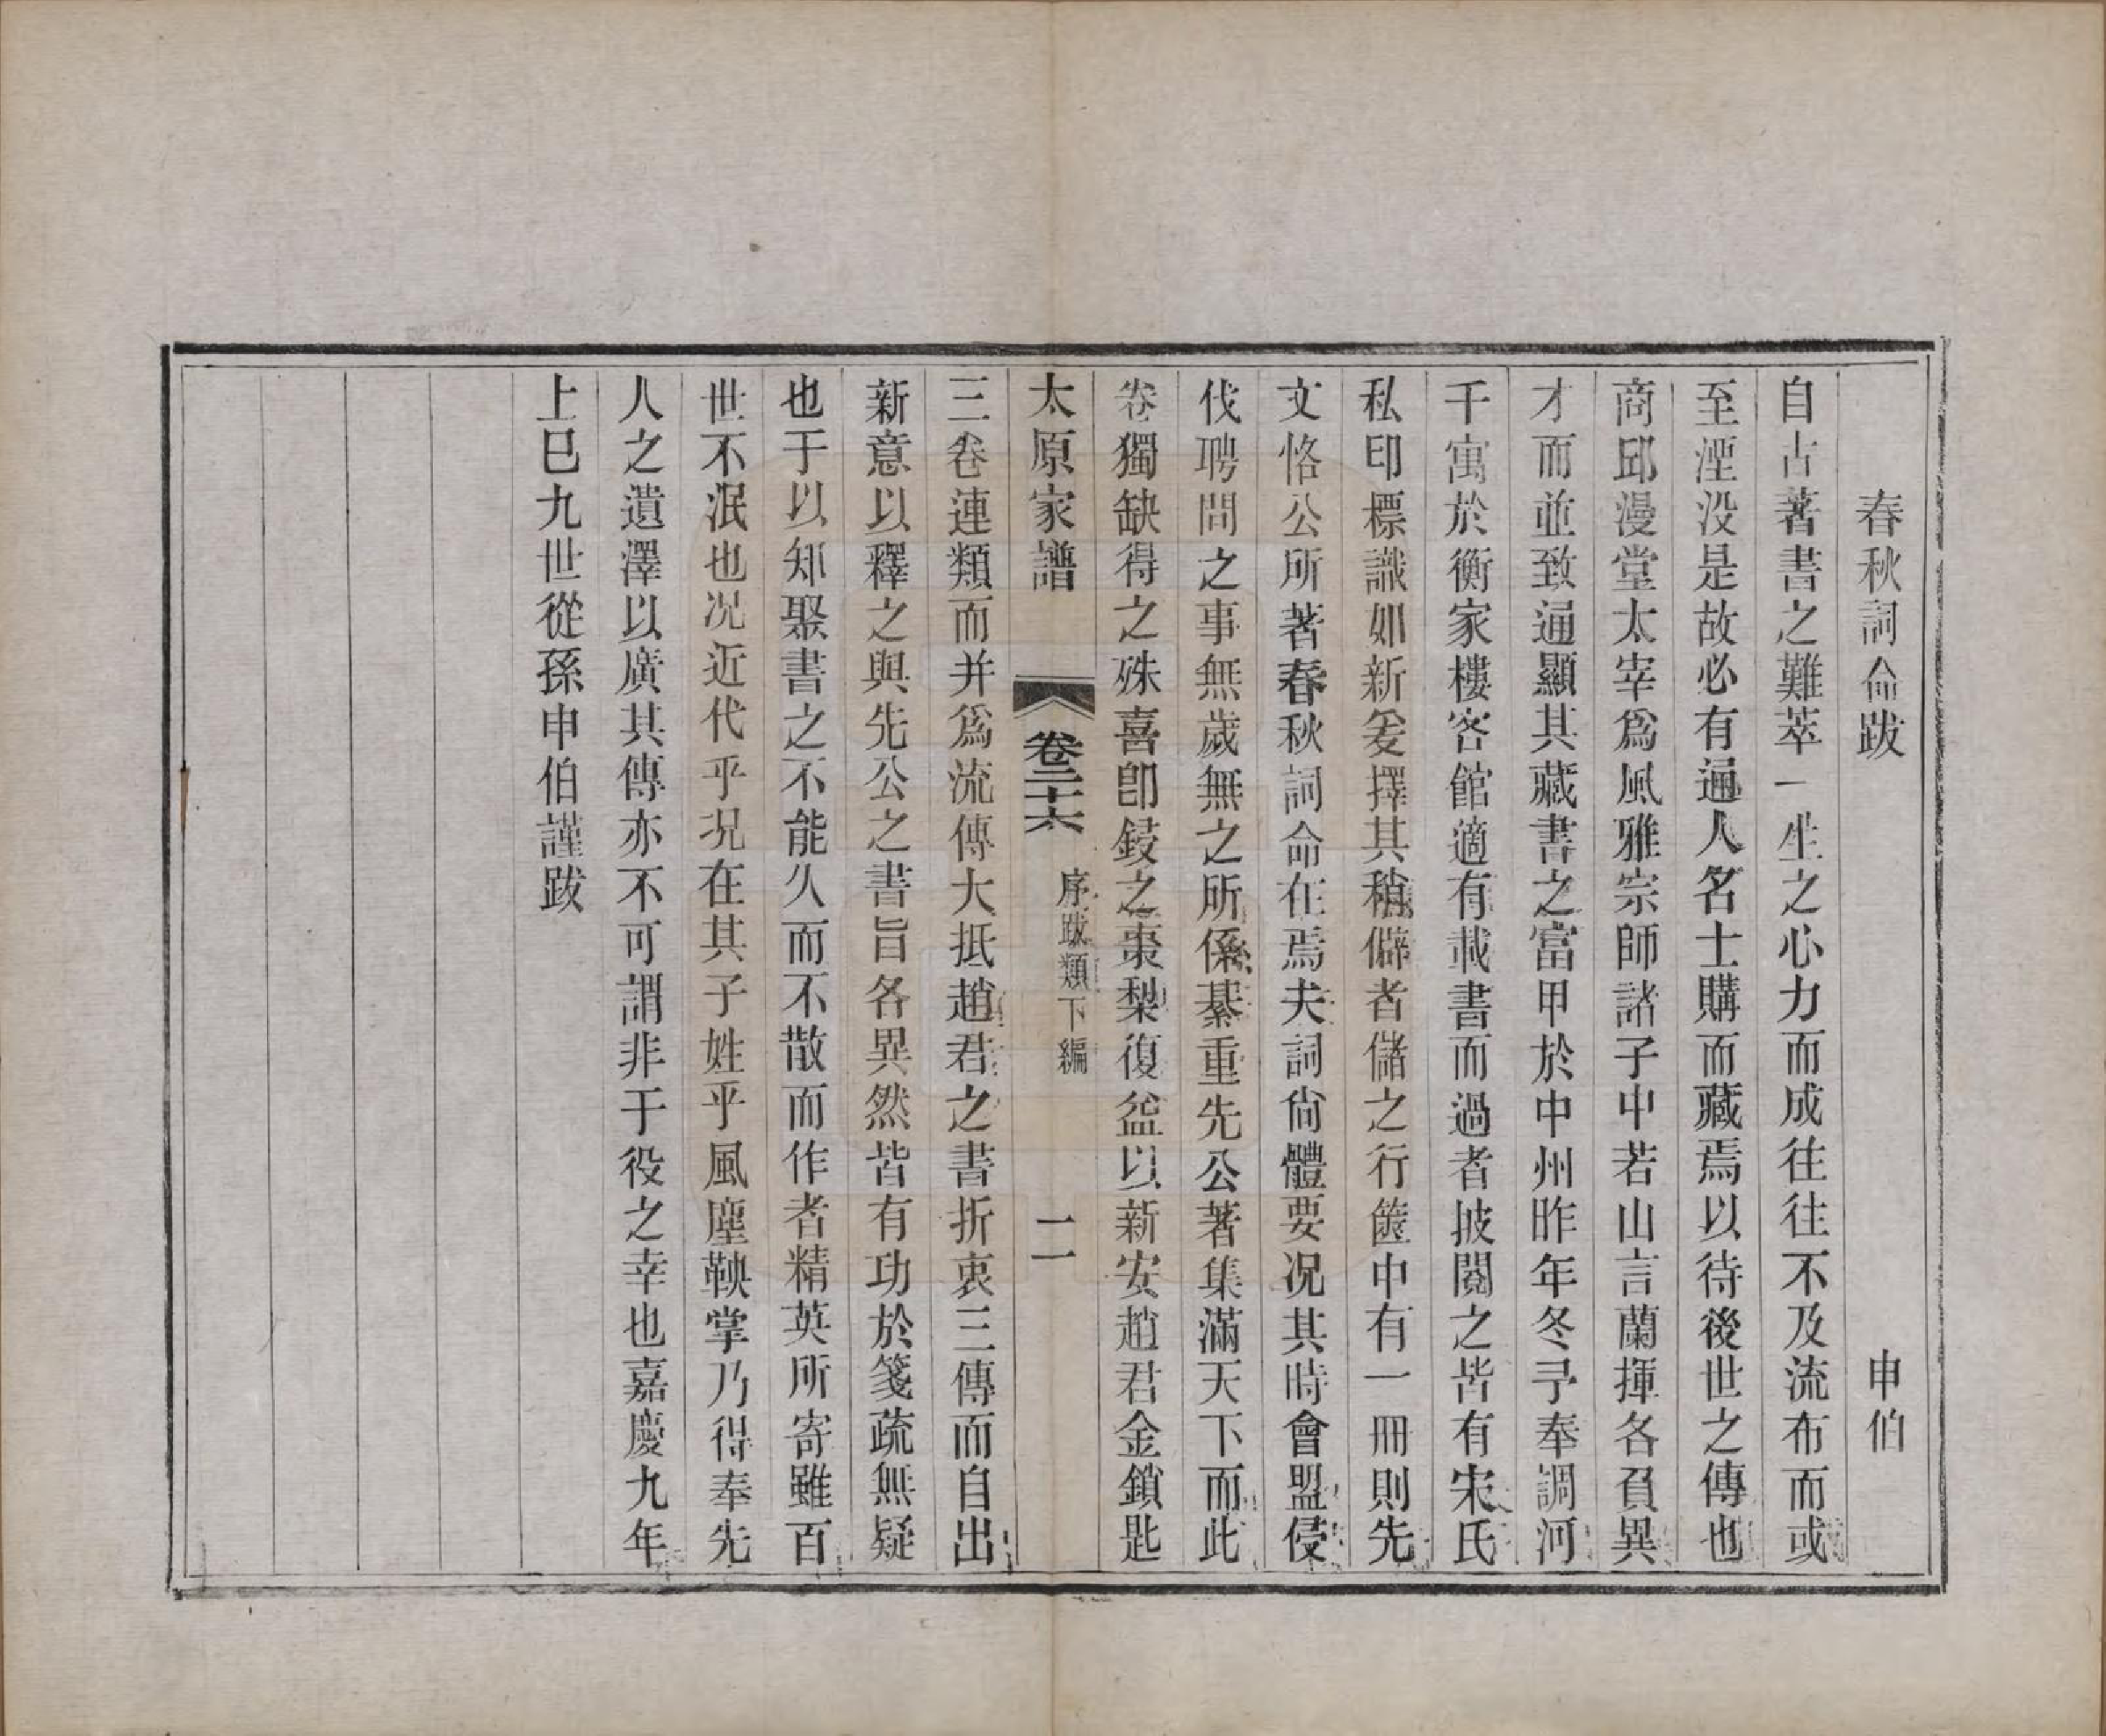 春秋詞命跋　申伯
自古著書之難萃一生之心力而成往往不及流布而或
至湮没是故必有通人名士購而藏焉以待後世之傳也
商邱漫堂太宰爲風雅宗師諸子中若山言蘭揮各負異
才而並致通顯其藏書之富甲於中州昨年冬予奉調河
干寓於衡家樓客館適有載書而過者披閱之皆有宋氏
私印標識如新爰擇其稍僻者儲之行篋中有一冊則先
文恪公所著春秋詞命在焉夫詞尙體要况其時會盟侵
伐聘問之事無歲無之所係綦重先公著集滿天下而此
卷獨缺得之殊喜卽鋟之棗梨復益以新安趙君金鎖匙
太原家譜　卷二十六　序跋類下編　二
三卷連類而并爲流傳大抵趙君之書折衷三傳而自出
新意以釋之與先公之書旨各異然皆有功於箋疏無疑
也于以知聚書之不能久而不散而作者精英所寄雖百
世不泯也况近代乎况在其子姓乎風塵鞅掌乃得奉先
人之遺澤以廣其傳亦不可謂非于役之幸也嘉慶九年
上巳九世從孫申伯謹跋